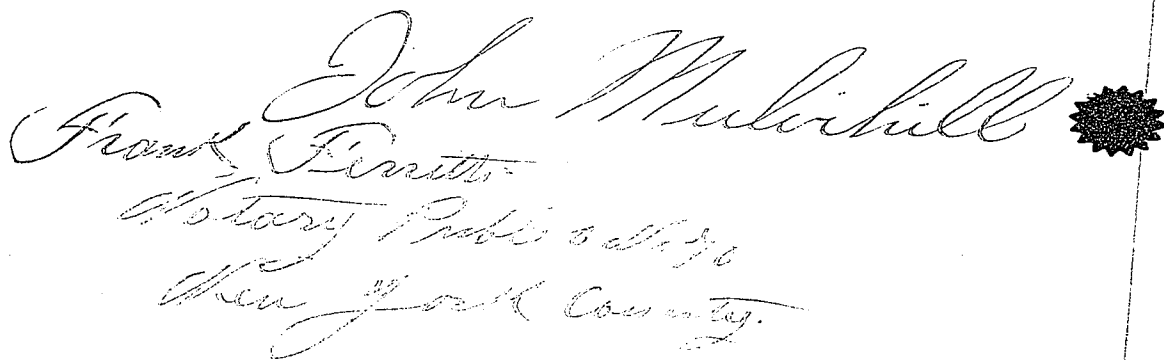 John Mulvihill
Frank Ferretti
Notary Public No 70
New York County.